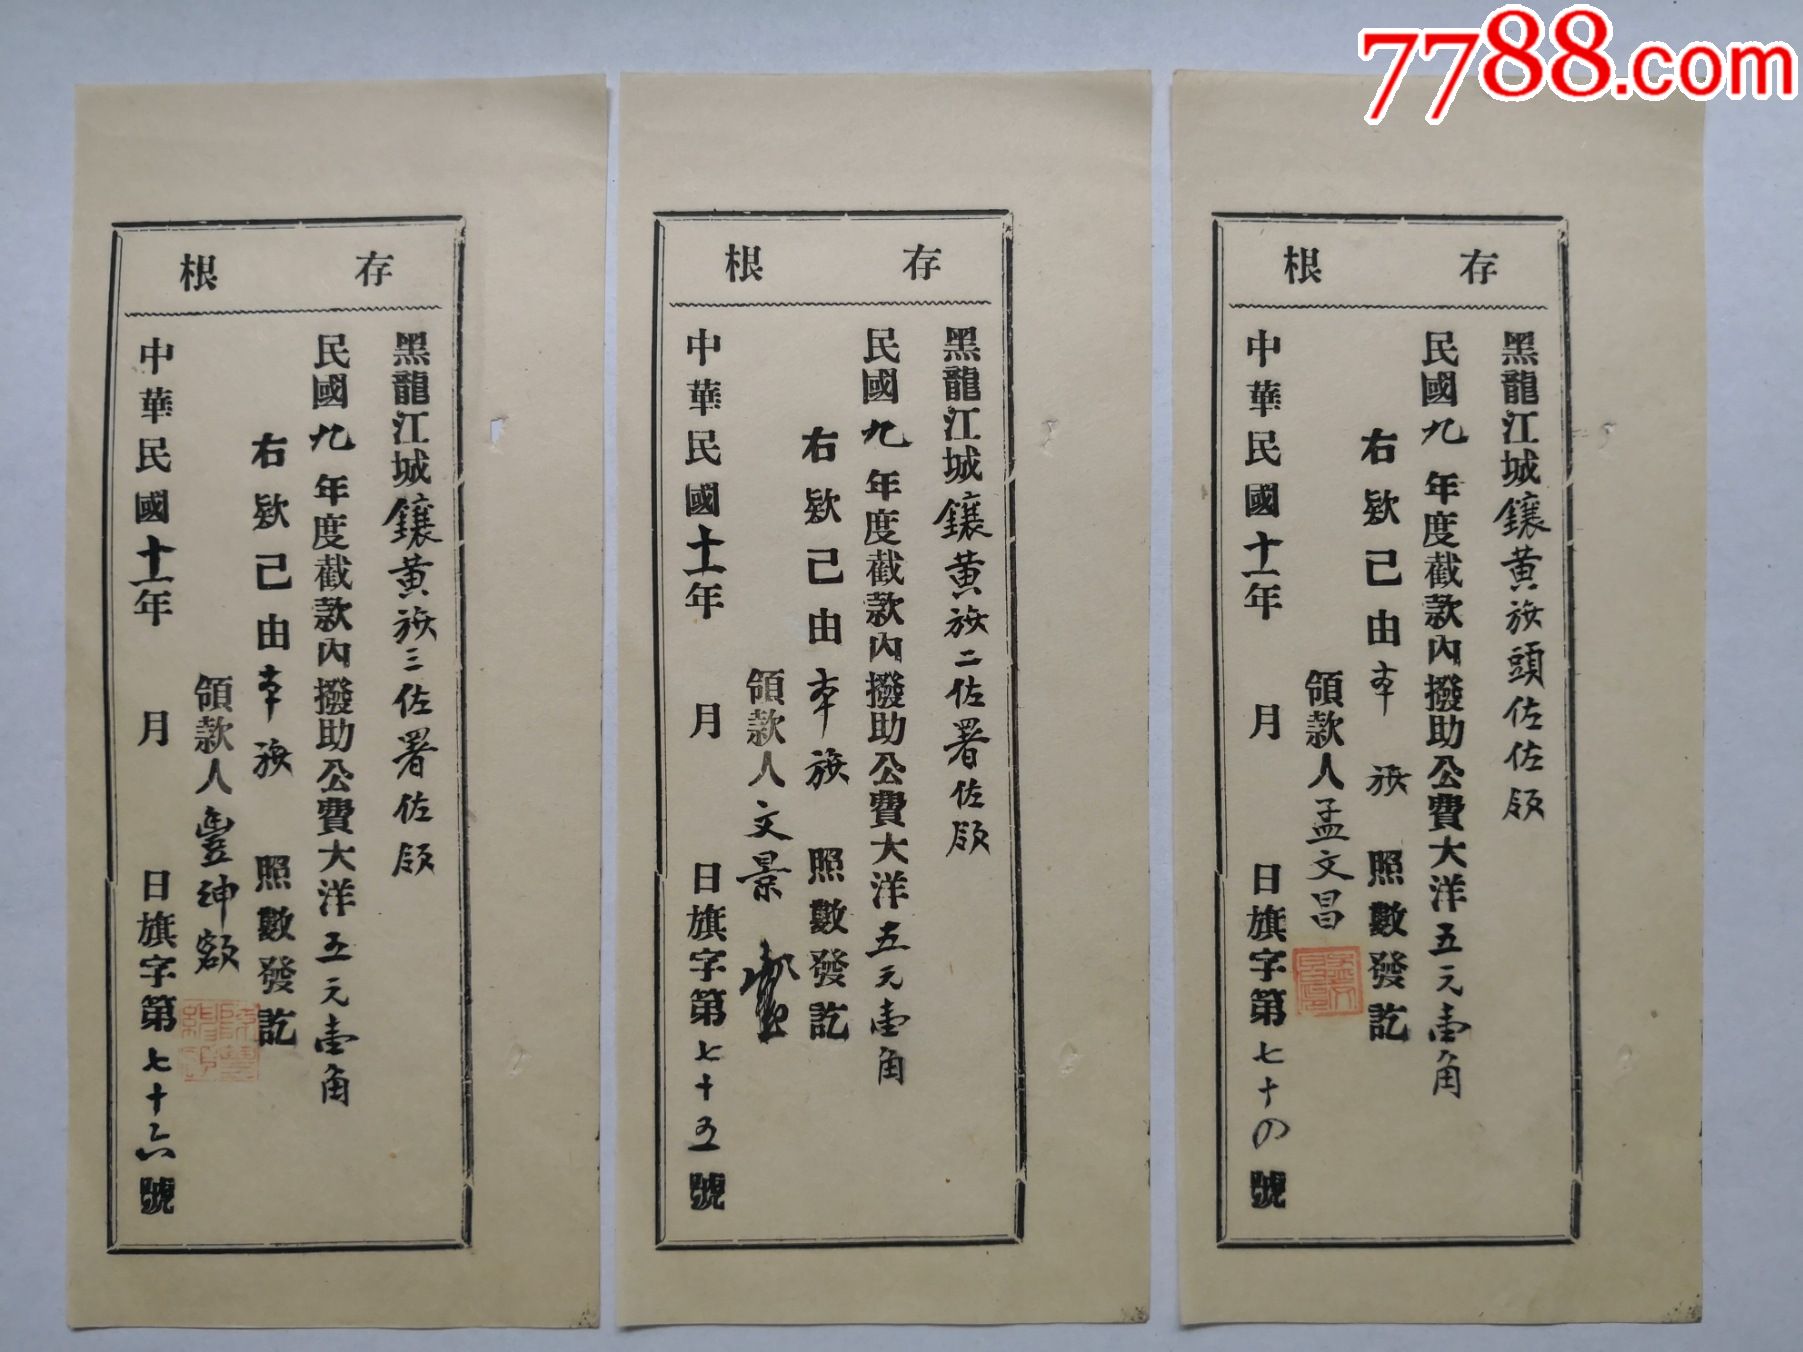 7788.com
存根
黑龍江城鑲黃旗頭佐佐領
民國九年度截款內撥助公費大洋五元壹角
右款已由本旗照數發訖
領款人孟文昌
中華民國十一年 月 日旗字第七十四號
存根
黑龍江城鑲黃旗二佐署佐領
民國九年度截款內撥助公費大洋五元壹角
右款已由本旗照數發訖
領款人文景
中華民國十一年 月 日旗字第七十五號
存根
黑龍江城鑲黃旗三佐署佐領
民國九年度截款內撥助公費大洋五元壹角
右款已由本旗照數發訖
領款人豐紳額
中華民國十一年 月 日旗字第七十六號